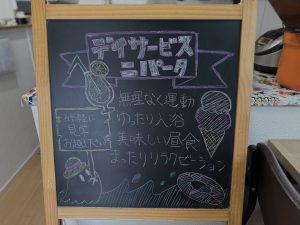 デイサービス
ニパータ
無理なく運動
ゆったり入浴
美味しい昼食
まったりリラクゼーション
お気軽に
見学
お越し下さい